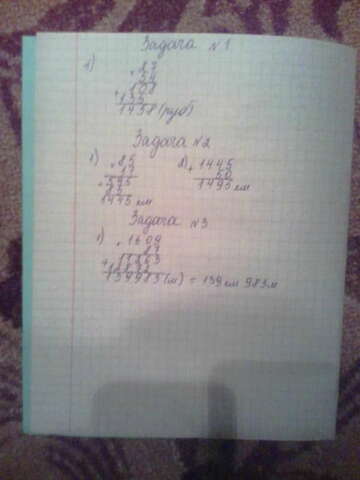 Задача №1
1) × 27
54
108
+ 135
1458 (руб)
Задача №2
1) × 85
17
595
+ 85
1445 км
2) + 1445
50
1495 км
Задача №3
1) × 1609
87
11263
+ 12872
139983 (м) = 139 км 983 м